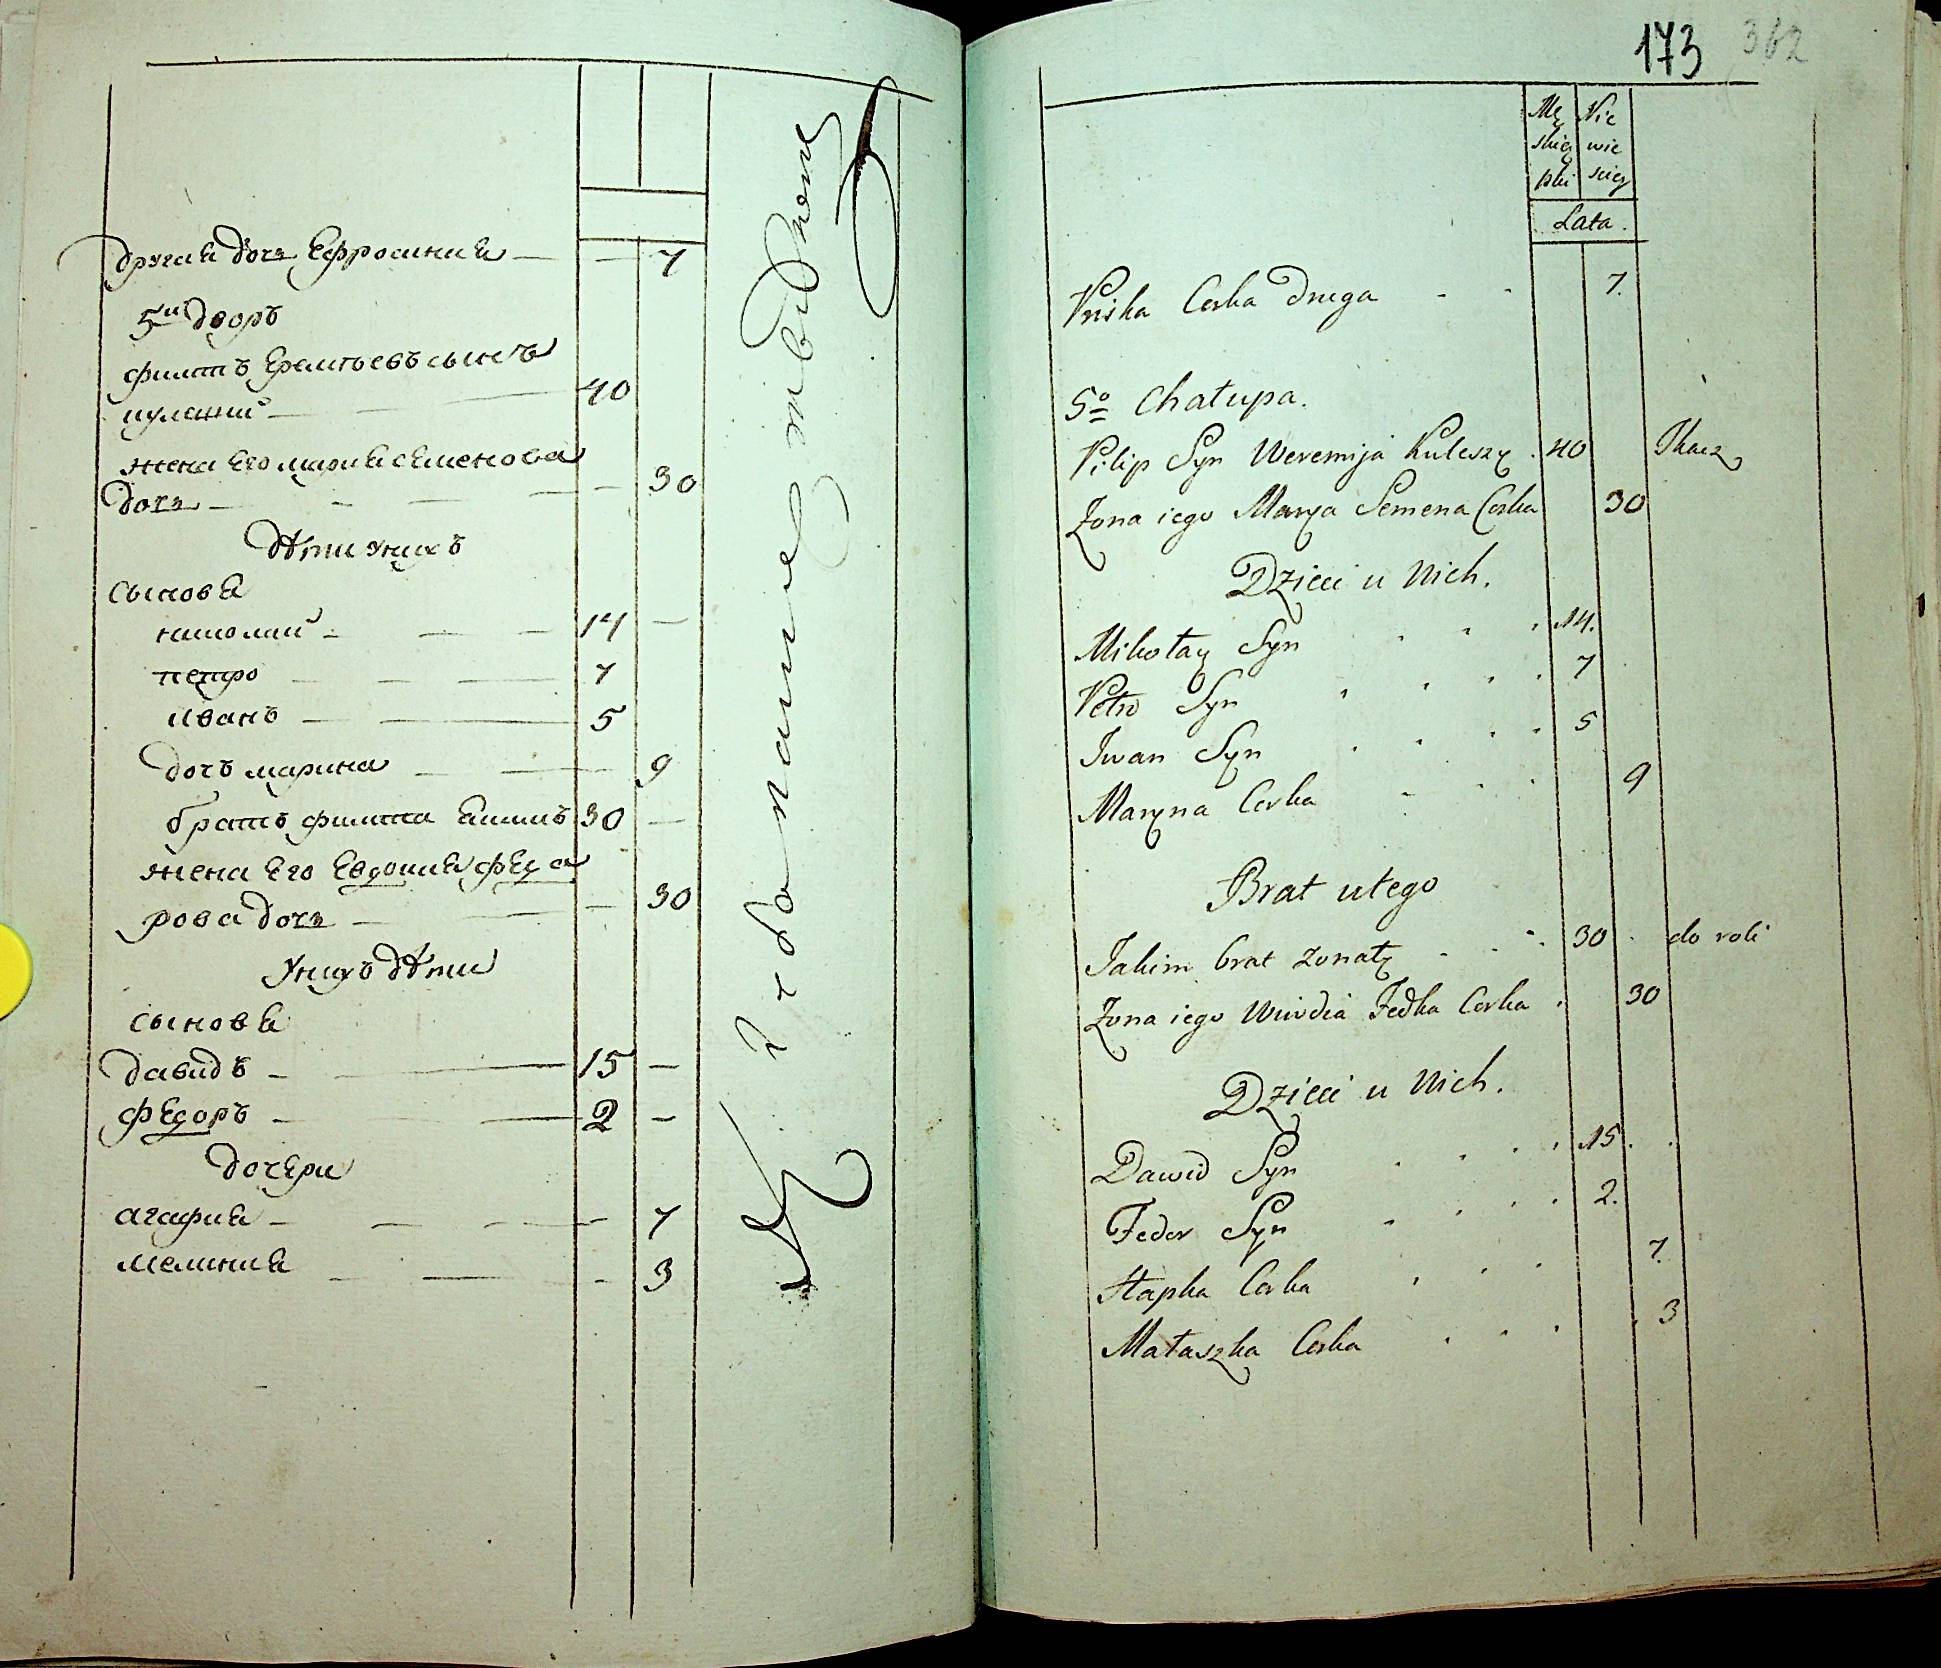 другая дочь Ефросиния — — 7
5й дворъ
Филипъ Еремѣевъ сынъ
кулешъ — 40
жена Его Мария Семенова
дочь — — — — 30
дѣти у нихъ
сыновья
николай — — — 14 —
петро — — — 7
иванъ — — 5
дочь марина — — 9
братъ филипа Екимъ 30 —
жена Его Евдокия Федо
рова дочь — — — 30
у нихъ дѣти
сыновья
давидъ — — 15 —
Федоръ — — 2 —
дочери
агафия — — — — 7
мелания — — — 3
173 362
Mę Nie
skiej wie
płci sciey
Lata.
Priska Corka Druga 7.
5o Chałupa.
Filip Syn Weremija Kuleszy 40 Tkacz
Żona iego Marya Semena Corka 30
Dzieci u Nich.
Mikołay Syn 14.
Petro Syn 7
Iwan Syn 5
Maryna Corka 9
Brat u tego
Jakim brat żonaty 30 do roli
Żona iego Fedka Corka 30
Dzieci u Nich.
Dawid Syn 15.
Fedor Syn 2.
Hapka Corka 7.
Małaszka Corka 3